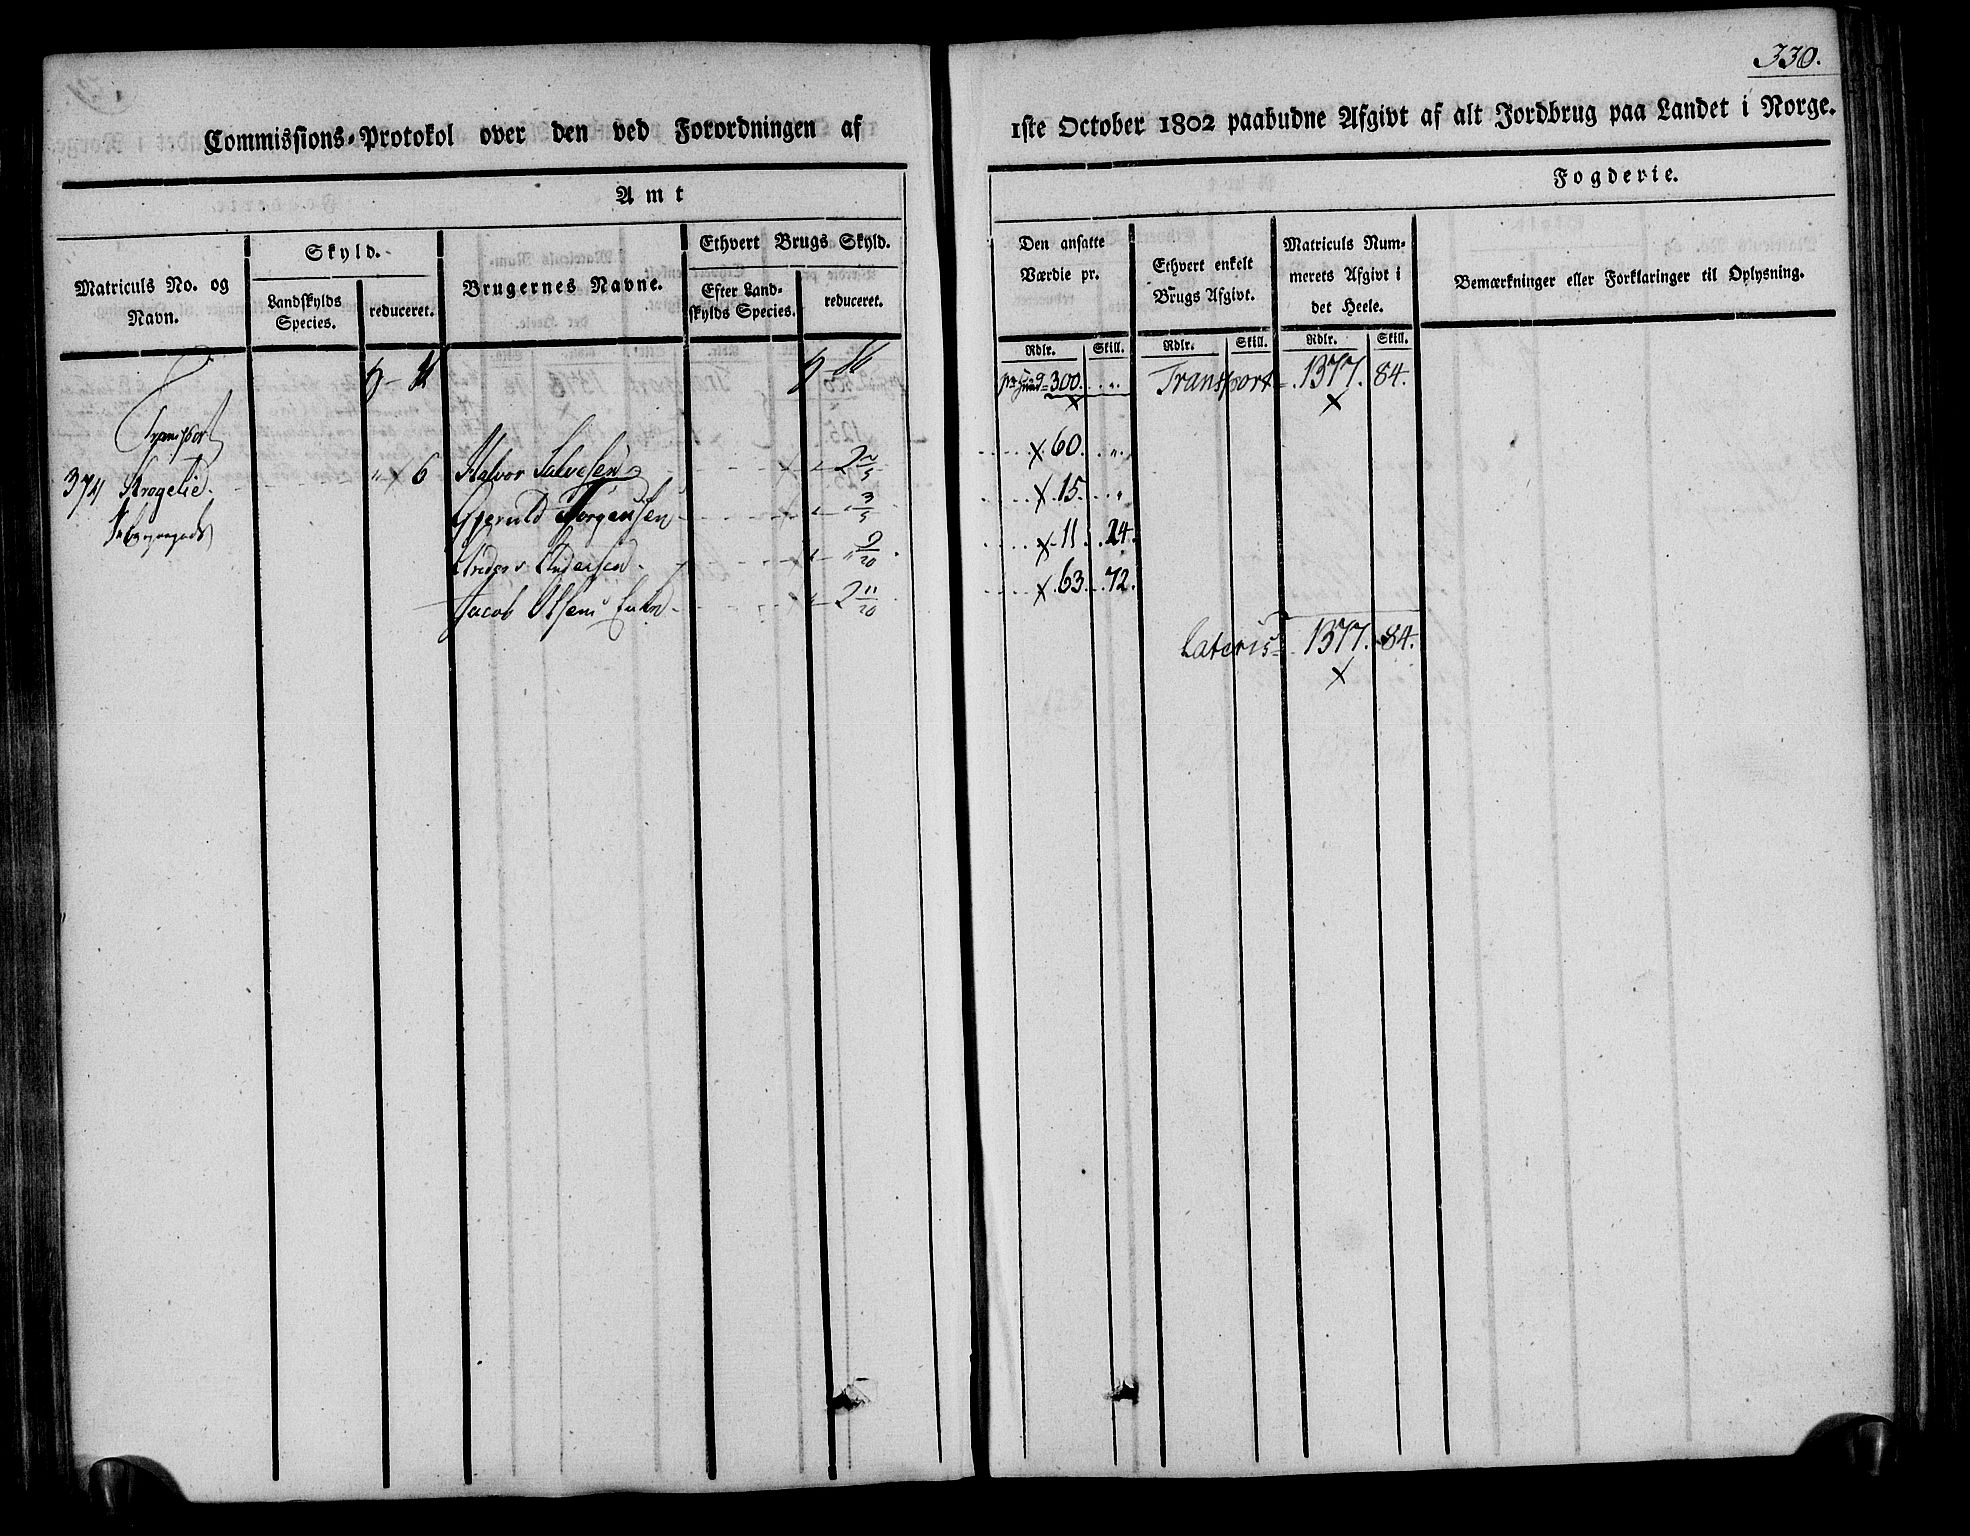 330.
Commissions-Protokol over den ved Forordningen af 1ste October 1802 paabudne Afgivt af alt Jordbrug paa Landet i Norge.
Amt
Fogderie.
Matriculs No. og Navn.
Skyld.
Landskylds Species.
reduceret.
Brugernes Navne.
Ethvert Brugs Skyld.
Efter Landskylds Species.
reduceret.
Den ansatte Værdie pr.
Rdlr. Skill.
Ethvert enkelt Brugs Afgivt.
Rdlr. Skill.
Matriculs Nummerets Afgivt i det Heele.
Rdlr. Skill.
Bemærkninger eller Forklaringer til Oplysning.
Transport
300. „ Transport 1377. 84.
374 6 Halvor Salvesen 2 2/5 60. „
3/5 15. „
Anders Andersen 9/20 11. 24.
Jacob Olsens Enke 2 11/20 63. 72.
Lateris 1377. 84.